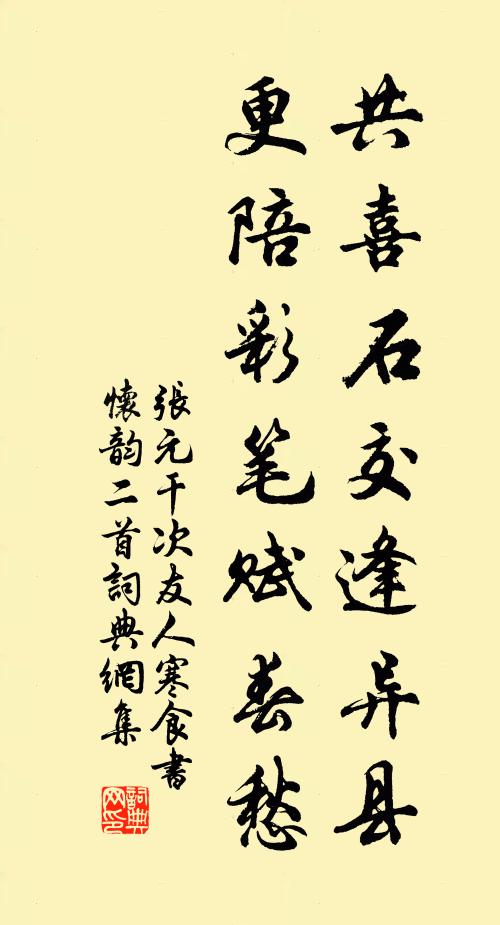 共喜石交逢异县
更陪彩笔赋春愁
張元干次友人寒食書
懷韵二首詞典網集
詞典
网印